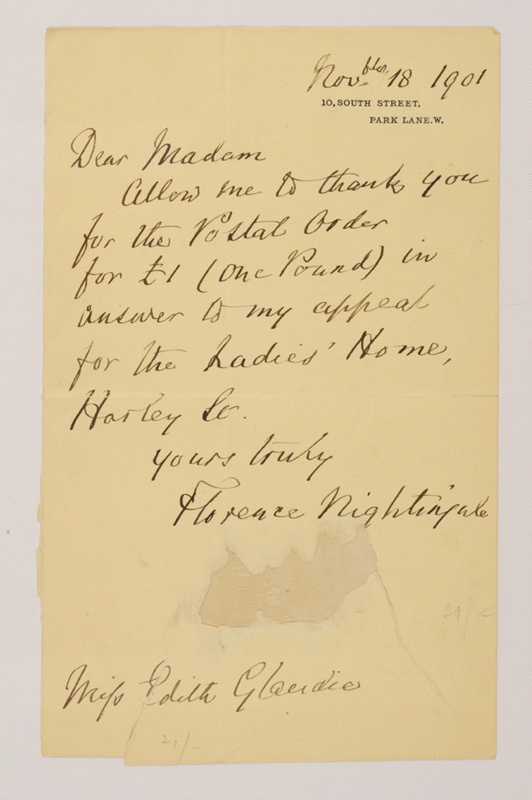 Novber 18 1901
10, SOUTH STREET,
PARK LANE. W.
Dear Madam
Allow me to thank you
for the Postal Order
for £1 (One Pound) in
answer to my appeal
for the Ladies' Home,
Harley St.
yours truly
Florence Nightingale
Miss Edith
21/-